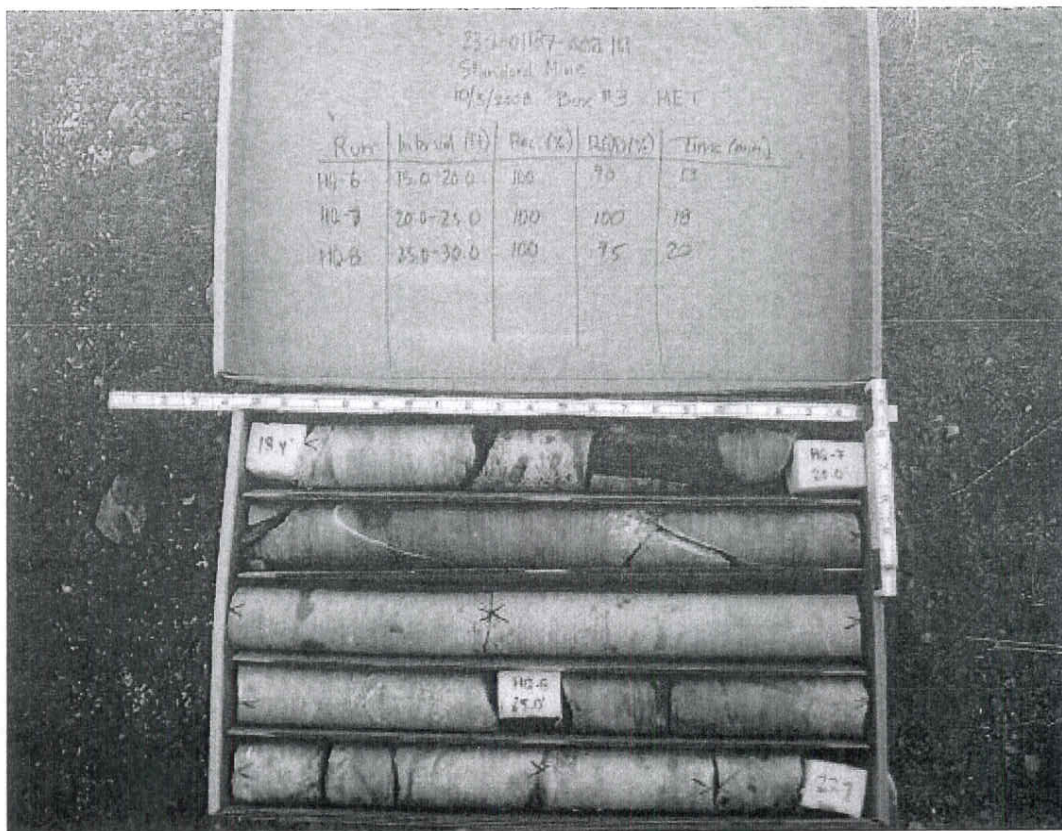 Standard Mine
10/8/2008 Box #3 MET
Run Interval (ft) Rec. (%) RQD (%) Time (min)
HQ-6 15.0-20.0 100 90 13
HQ-7 20.0-25.0 100 100 18
HQ-8 25.0-30.0 100 95 20
HQ-7
20.0
25.0'